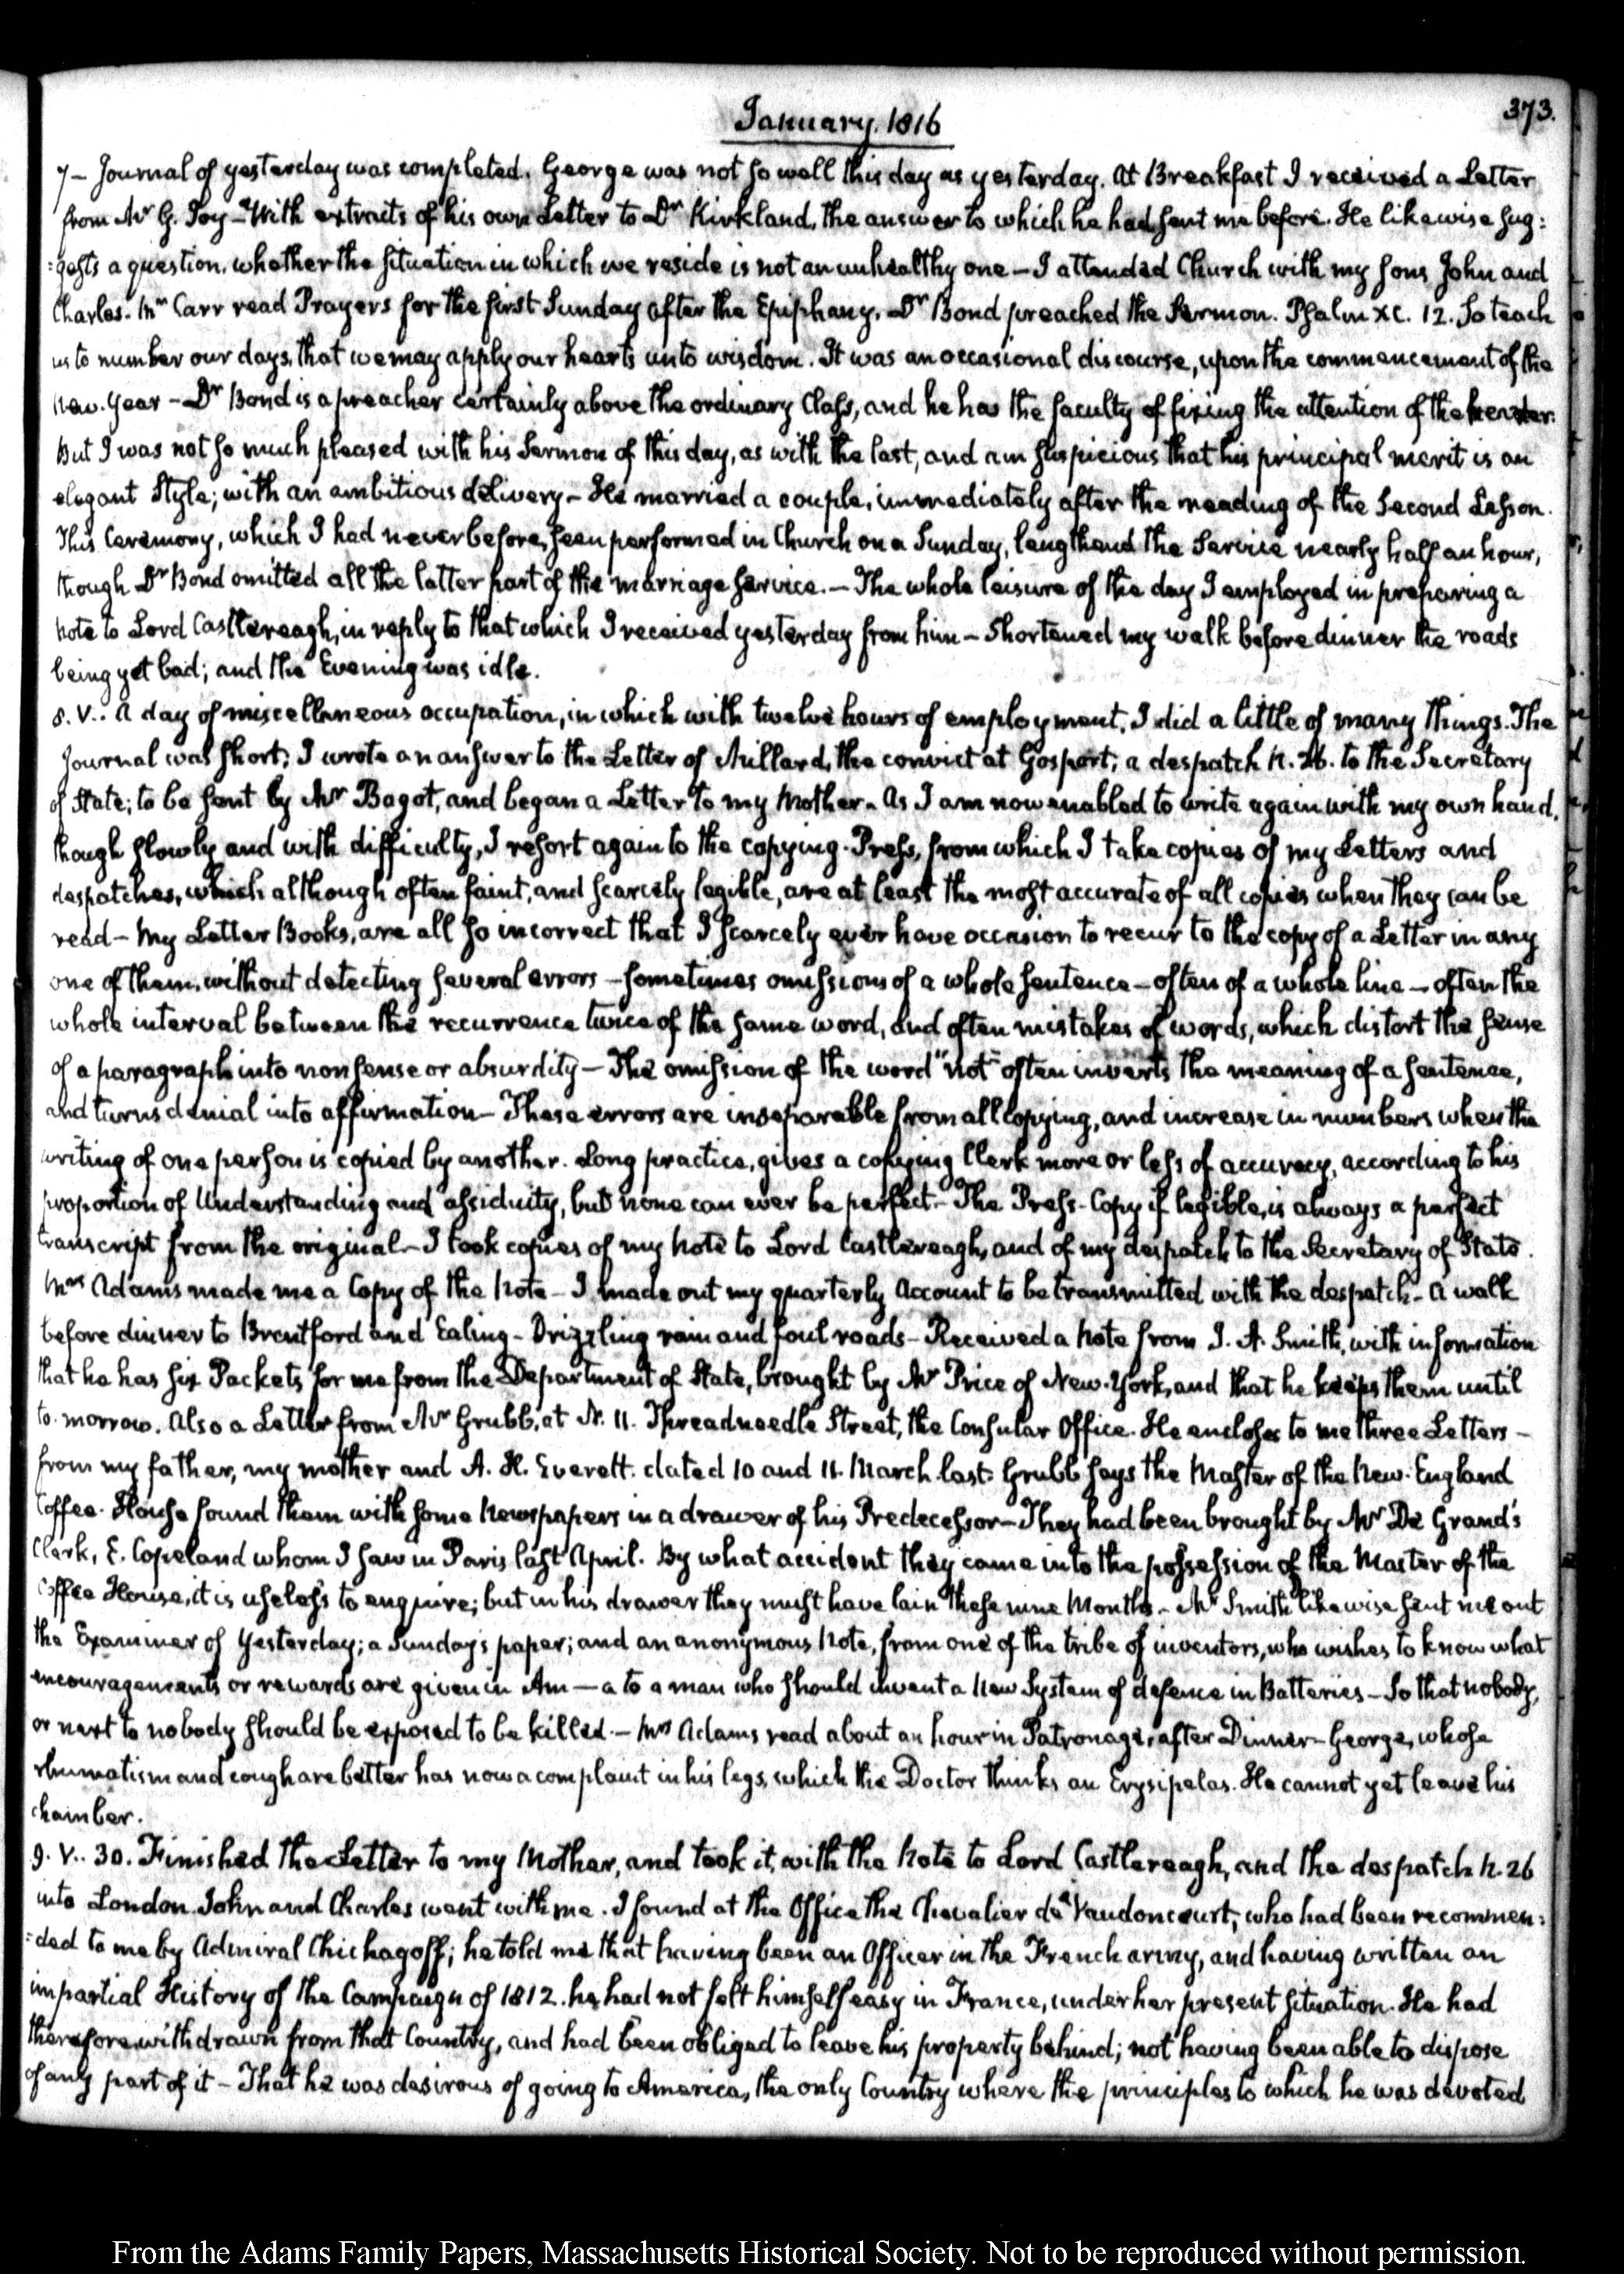 January. 1816
373.
7 – Journal of yesterday was completed. George was not so well this day as yesterday. At Breakfast I received a Letter
from Mr G. Joy – With extracts of his own Letter to Dr Kirkland, the answer to which he had sent me before. He likewise sug:
:gests a question, whether the situation in which we reside is not an unhealthy one – I attended Church with my Sons John and
Charles. Mr Carr read Prayers for the first Sunday after the Epiphany. Dr Bond preached the Sermon. Psalm XC. 12. So teach
us to number our days, that we may apply our hearts unto wisdom. It was an occasional discourse, upon the commencement of the
New. Year – Dr Bond is a preacher certainly above the ordinary Class, and he has the faculty of fixing the attention of the hearer.
But I was not so much pleased with his Sermon of this day, as with the last, and am suspicious that his principal merit is an
elegant Style; with an ambitious delivery – He married a couple, immediately after the reading of the Second Lesson.
This Ceremony, which I had never before, seen performed in Church on a Sunday, lengthend the Service nearly half an hour,
though Dr Bond omitted all the latter part of the marriage service. – The whole leisure of the day I employed in preparing a
Note to Lord Castlereagh, in reply to that which I received yesterday from him – Shortened my walk before dinner the roads
being yet bad; and the Evening was idle.
8. V.. A day of miscellaneous occupation, in which with twelve hours of employment, I did a little of many things. The
Journal was short; I wrote an answer to the Letter of Millard, the convict at Gosport; a despatch N. 26. to the Secretary
of State; to be sent by Mr Bagot, and began a Letter to my Mother – As I am now enabled to write again with my own hand,
though slowly and with difficulty, I resort again to the copying-Press, from which I take copies of my Letters and
despatches, which although often faint, and scarcely legible, are at least the most accurate of all copies when they can be
read – My Letter Books, are all so incorrect that I scarcely ever have occasion to recur to the copy of a Letter in any
one of them, without detecting several errors – sometimes omissions of a whole sentence – often of a whole line – often the
whole interval between the recurrence twice of the same word, and often mistakes of words, which distort the sense
of a paragraph into nonsense or absurdity – The omission of the word "not" often inverts the meaning of a sentence,
and turns denial into affirmation – These errors are inseparable from all Copying, and increase in numbers when the
writing of one person is copied by another. Long practice, gives a copying Clerk more or less of accuracy, according to his
proportion of Understanding and assiduity, but none can ever be perfect – The Press-Copy if legible, is always a perfect
transcript from the original – I took copies of my Note to Lord Castlereagh, and of my despatch to the Secretary of State.
Mrs Adams made me a Copy of the Note – I made out my quarterly Account to be transmitted with the despatch – A walk
before dinner to Brentford and Ealing – Drizzling rain and foul roads – Received a Note from J. A. Smith, with information
that he has six Packets for me from the Department of State, brought by Mr Price of New-York, and that he keeps them until
to-morrow. Also a Letter from Mr Grubb, at N. 11. Threadneedle Street, the Consular Office. He encloses to me three Letters –
from my father, my mother and A. H. Everett. dated 10 and 11. March last. Grubb says the Master of the New-England
Coffee-House found them with some Newspapers in a drawer of his Predecessor – They had been brought by Mr De Grand's
Clerk, E. Copeland whom I saw in Paris last April. By what accident they came into the possession of the Master of the
Coffee House, it is useless to enquire; but in his drawer they must have lain these nine Months – Mr Smith likewise sent me out
the Examiner of Yesterday; a Sunday's paper; and an anonymous Note, from one of the tribe of inventors, who wishes to know what
encouragements or rewards are given in Am—a to a man who should invent a New System of defence in Batteries – So that nobody,
or next to nobody should be exposed to be killed. – Mrs Adams read about an hour in Patronage, after Dinner – George, whose
rheumatism and cough are better has now a complaint in his legs, which the Doctor thinks an Erysipelas. He cannot yet leave his
chamber.
9. V.. 30. Finished the Letter to my Mother, and took it, with the Note to Lord Castlereagh, and the despatch N. 26
into London. John and Charles went with me. I found at the Office the Chevalier de Vaudoncourt, who had been recommen:
:ded to me by Admiral Chichagoff; he told me that having been an Officer in the French army, and having written an
impartial History of the Campaign of 1812. he had not felt himself easy in France, under her present situation. He had
therefore withdrawn from that Country, and had been obliged to leave his property behind; not having been able to dispose
of any part of it – That he was desirous of going to America, the only Country where the principles to which he was devoted
From the Adams Family Papers, Massachusetts Historical Society. Not to be reproduced without permission.